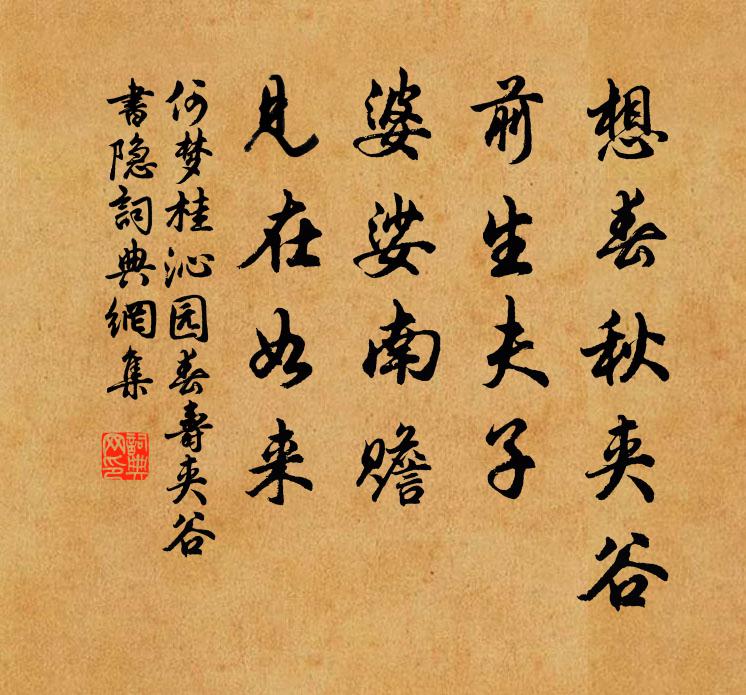 想春秋夹谷
前生夫子
婆娑南赡
见在如来
何梦桂沁园春寿夹谷
书隐词典網集
詞典网印